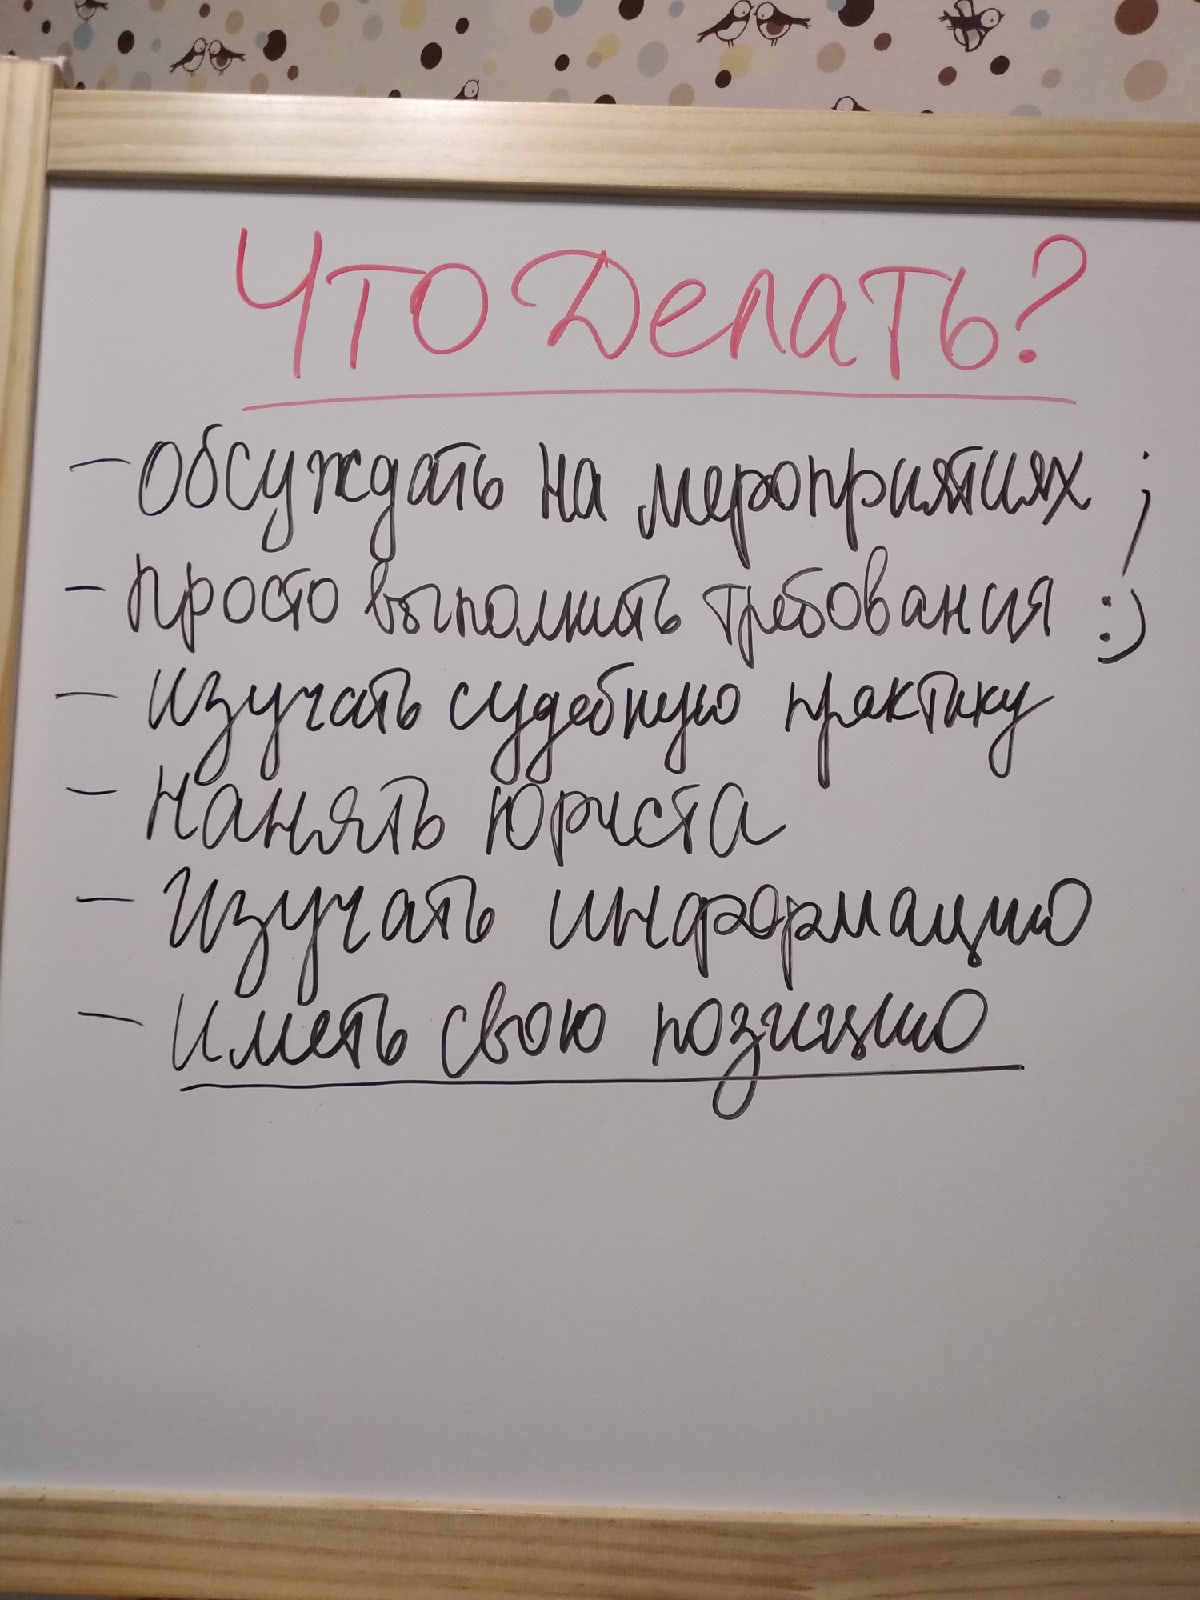 Что Делать?
- Обсуждать на мероприятиях ;
- просто выполнить требования :)
- изучать судебную практику
- Нанять юриста
- Изучать информацию
- иметь свою позицию